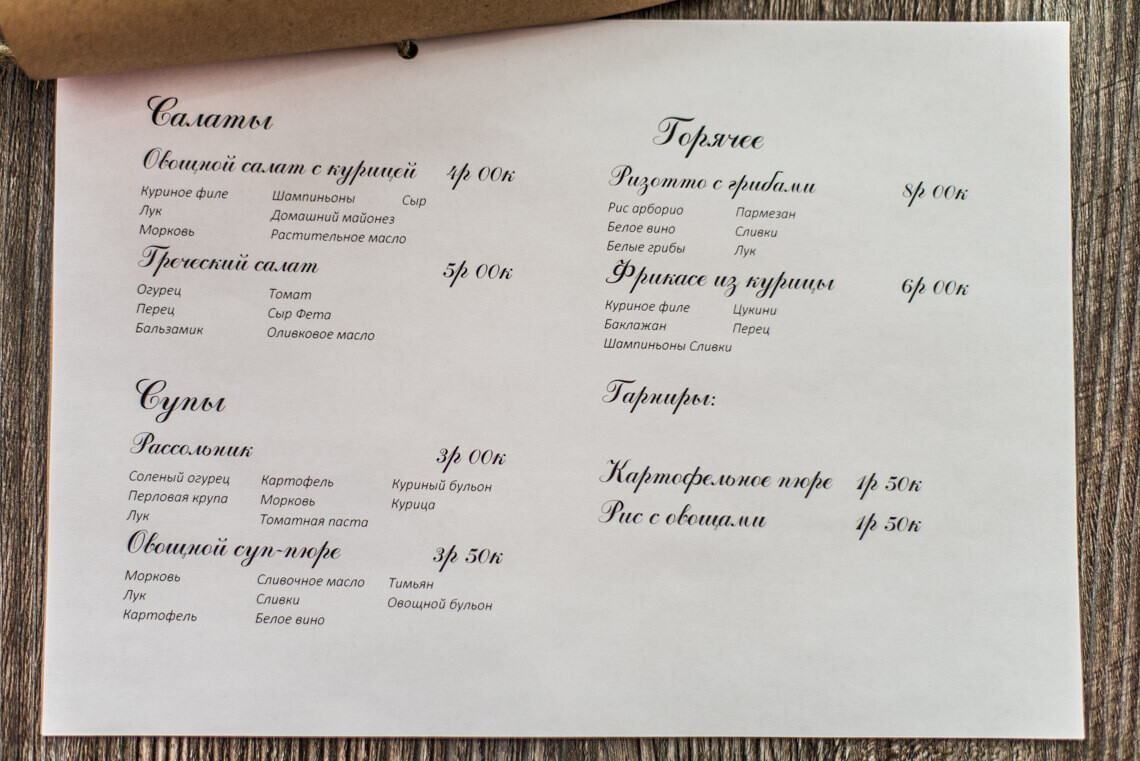 Салаты
Овощной салат с курицей 4р 00к
Куриное филе Шампиньоны Сыр
Лук Домашний майонез
Морковь Растительное масло
Греческий салат 5р 00к
Огурец Томат
Перец Сыр Фета
Бальзамик Оливковое масло
Супы
Рассольник 3р 00к
Соленый огурец Картофель Куриный бульон
Перловая крупа Морковь Курица
Лук Томатная паста
Овощной суп-пюре 3р 50к
Морковь Сливочное масло Тимьян
Лук Сливки Овощной бульон
Картофель Белое вино
Горячее
Ризотто с грибами 8р 00к
Рис арборио Пармезан
Белое вино Сливки
Белые грибы Лук
Фрикасе из курицы 6р 00к
Куриное филе Цукини
Баклажан Перец
Шампиньоны Сливки
Гарниры:
Картофельное пюре 1р 50к
Рис с овощами 1р 50к